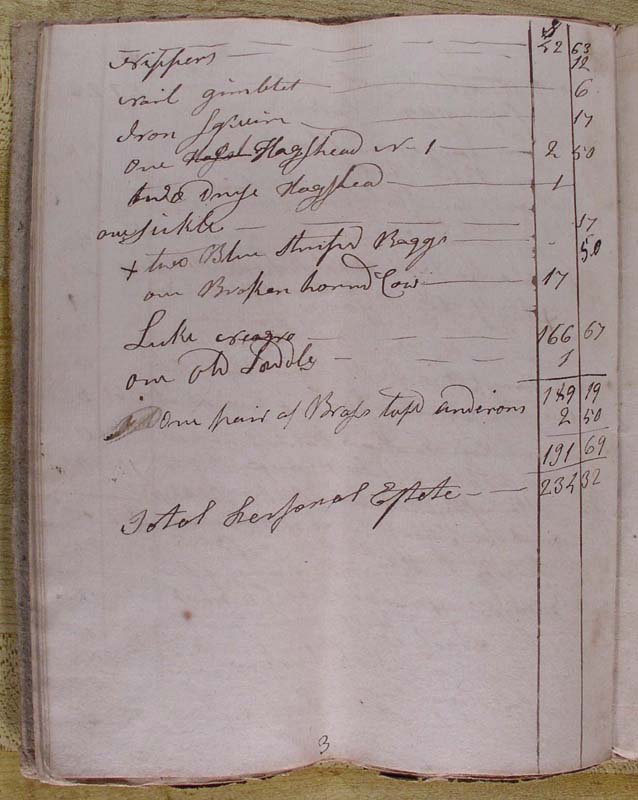 $
42 63
Nippers 12
nail gimblet 6
Iron Squair 17
one Hogshead N 1 2 50
two Hogshead 1
one sickle 17
+ two Blue Striped Baggs 50
one Broken hornd Cow 17
Luke negro 166 67
one old Saddle 1
189 19
one pair of Brass topd andirons 2 50
191 69
Total Personal Estate 234 32
3